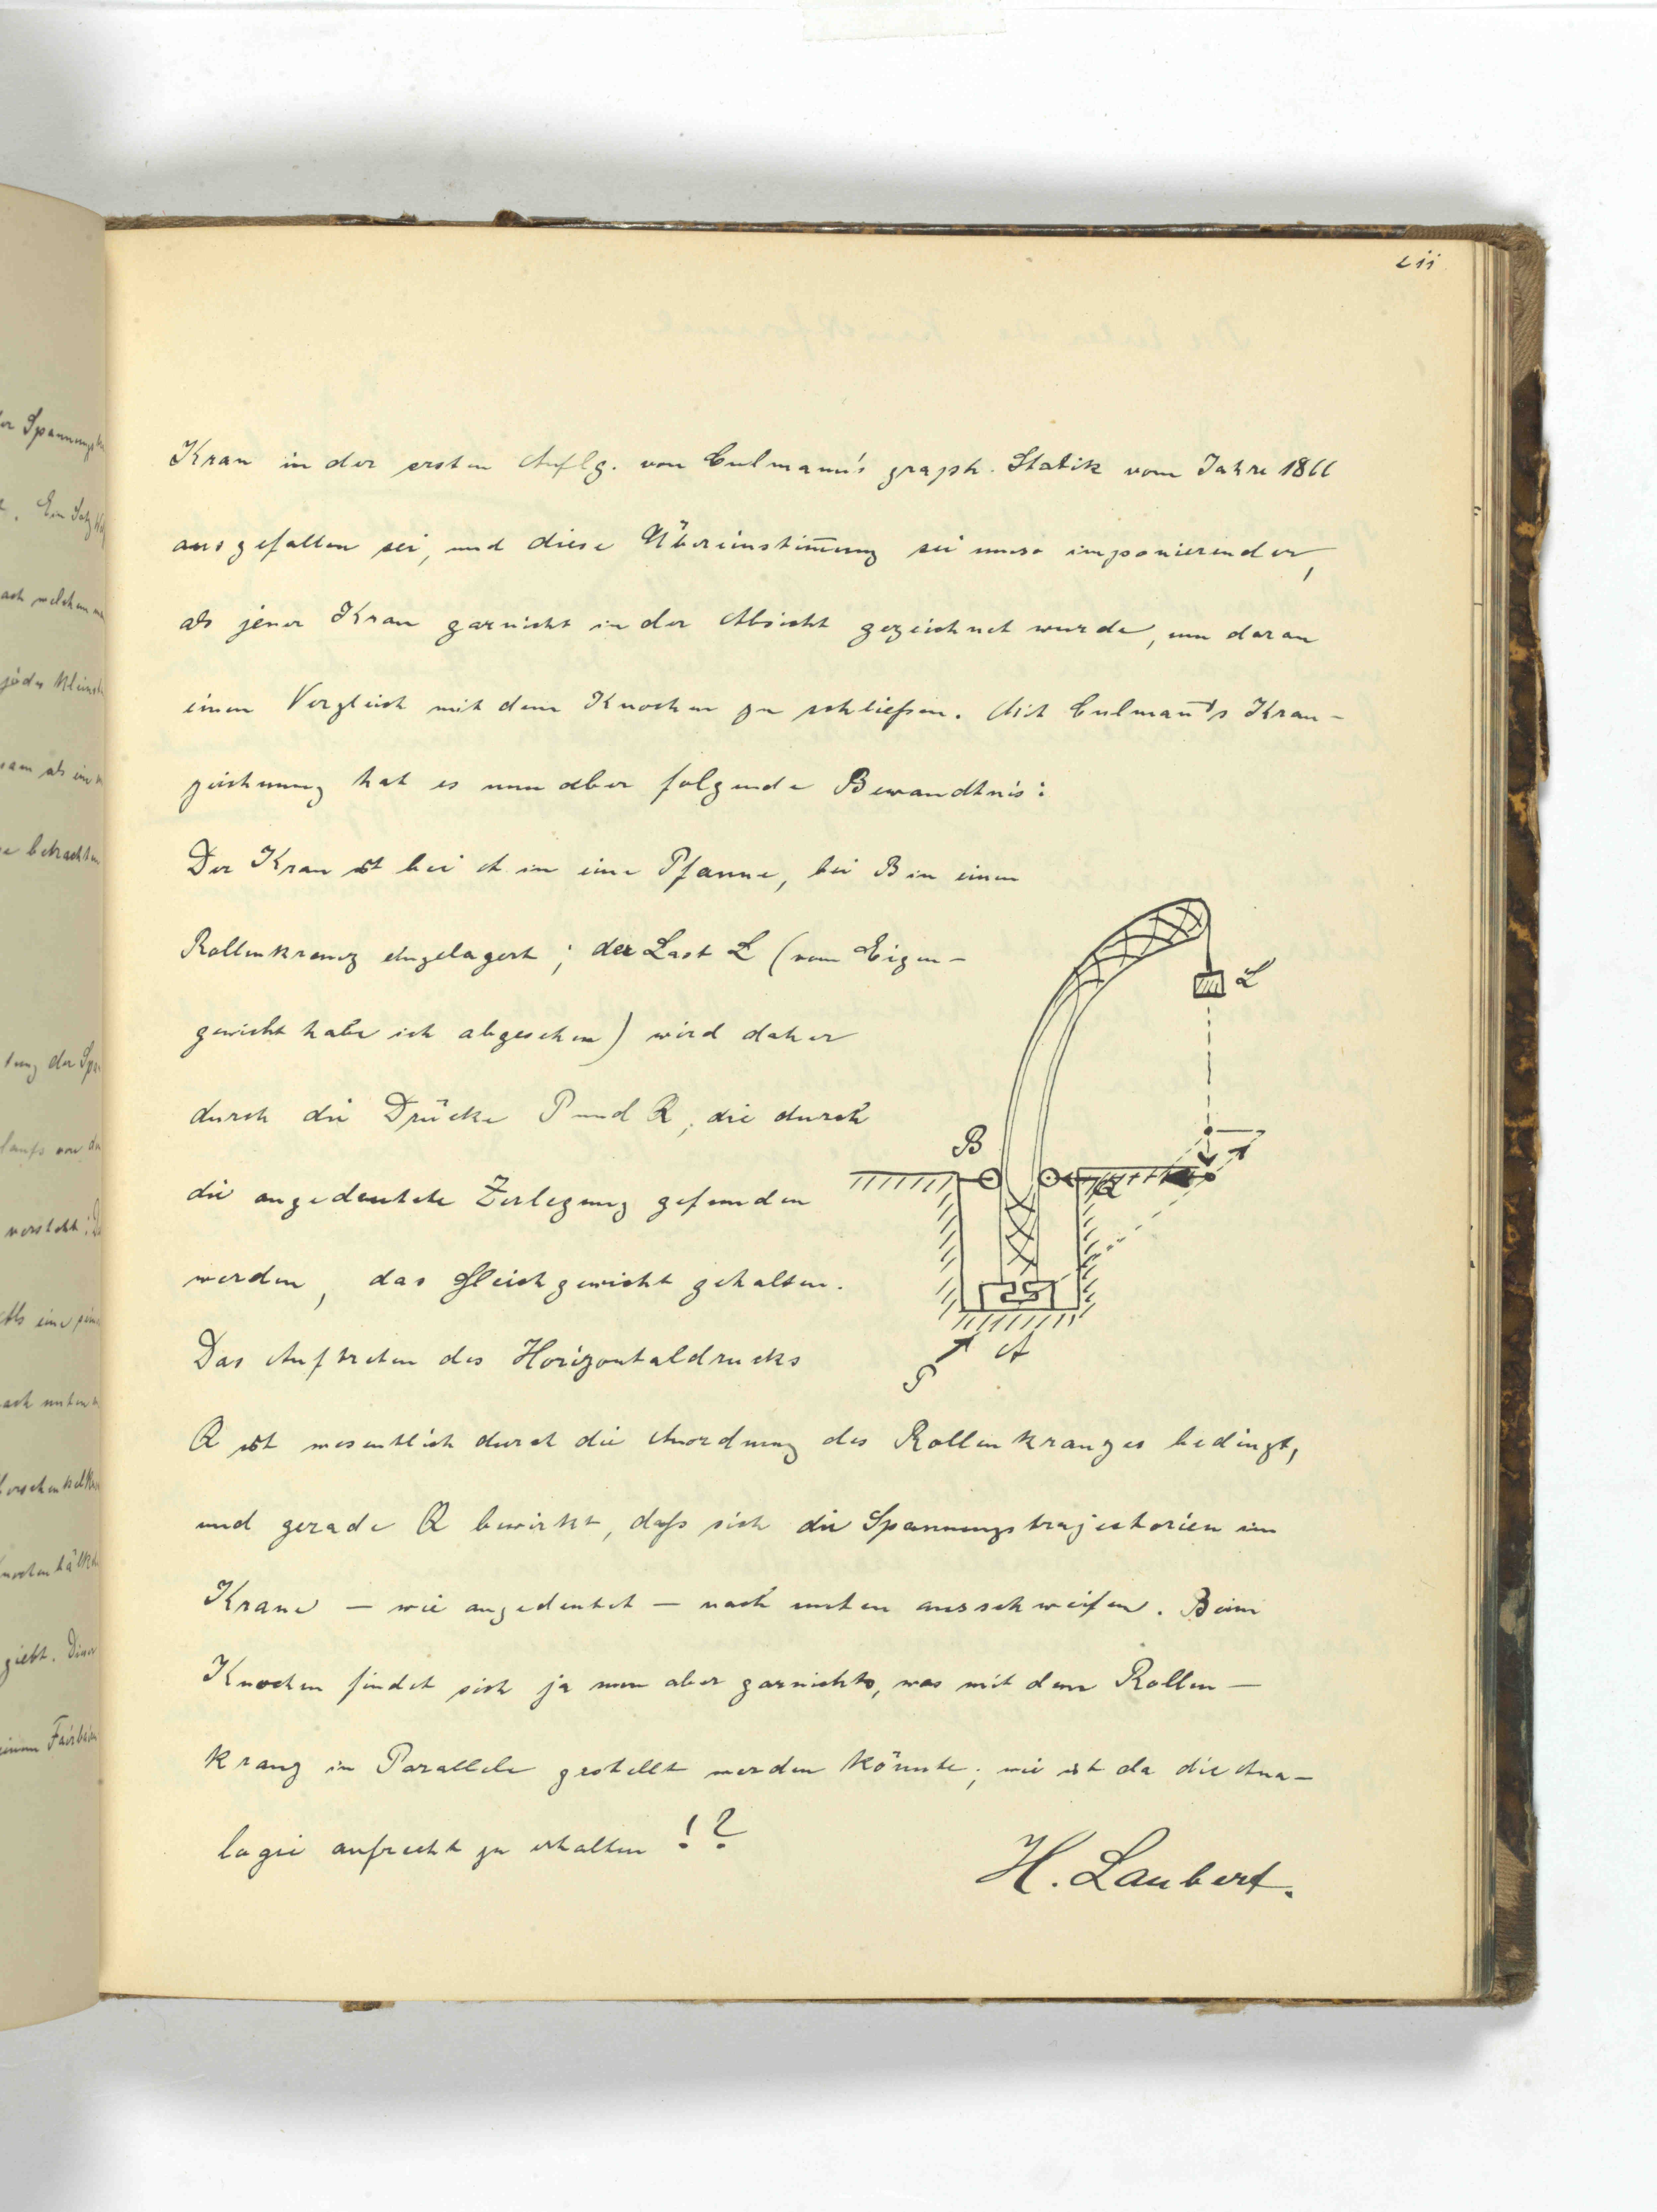 111
Kran in der ersten Auflg. von Culmann's graph. Statik vom Jahre 1866
ausgefallen sei, und diese Übereinstim̅ung sei umso imponierender,
als jener Kran garnicht in der Absicht gezeichnet wurde, um daran
einen Vergleich mit dem Knochen zu schließen. Mit Culman̅'s Kran-
zeichnung hat es nun aber folgende Bewandtnis:
Der Kran ist bei A in eine Pfanne, bei B in einen
Rollenkranz eingelagert; der Last L (vom Eigen-
gewicht habe ich abgesehen) wird daher
durch die Drücke P und Q, die durch
die angedeutete Zerlegung gefunden
werden, das Gleichgewicht gehalten.
Das Auftreten des Horizontaldrucks
Q ist wesentlich durch die Anordnung des Rollenkranzes bedingt,
und gerade Q bewirkt, daß sich die Spannungstrajectorien im
Krane – wie angedeutet – nach unten ausschweifen. Beim
Knochen findet sich ja nun aber garnichts, was mit dem Rollen-
kranz in Parallele gestellt werden könnte; wie ist da die Ana-
logie aufrecht zu erhalten!?
H. Laubert.
L
B
Q
A
P